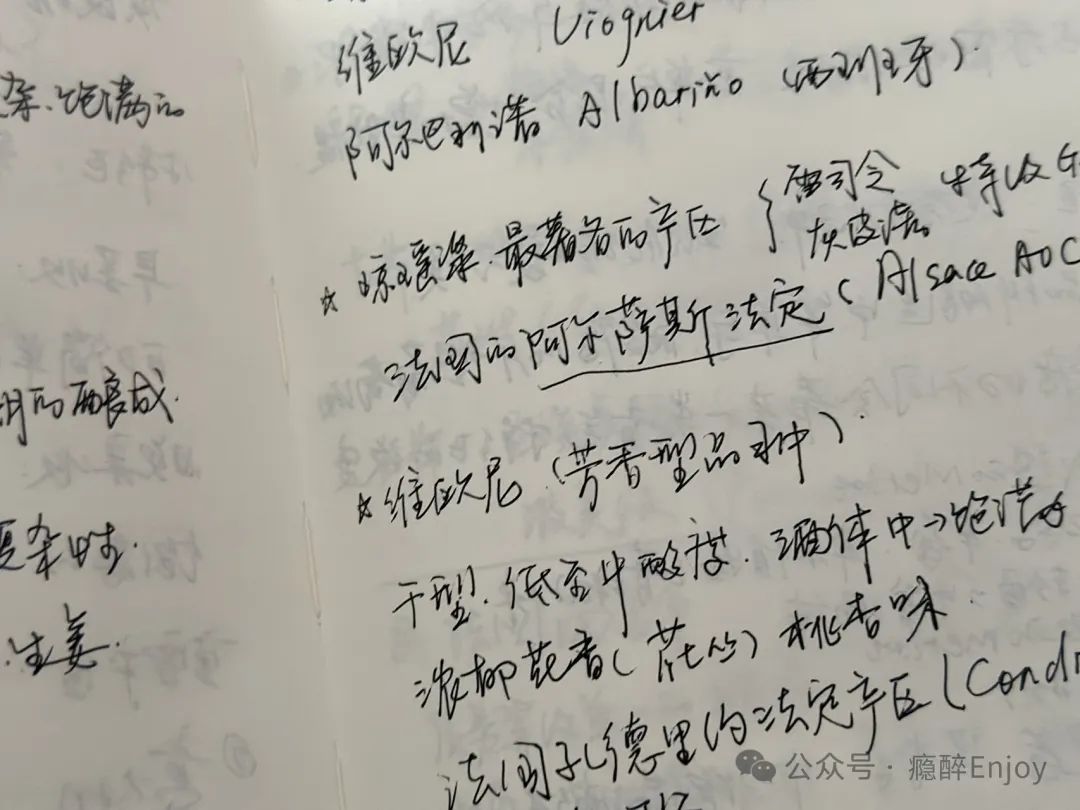 杂.饱满的
明的酿成.
复杂性.
.生姜.
维欧尼 Viognier
阿尔巴利诺 Albariño (西班牙).
☆ 琼瑶浆.最著名的产区 { 雷司令
灰皮诺
法国的阿尔萨斯法定 (Alsace AOC
☆ 维欧尼 (芳香型品种).
干型.低至中酸度.酒体中→饱满
浓郁花香(花丛) 桃杏味.
法国孔德里约法定产区(Condr
公众号·瘾醉Enjoy